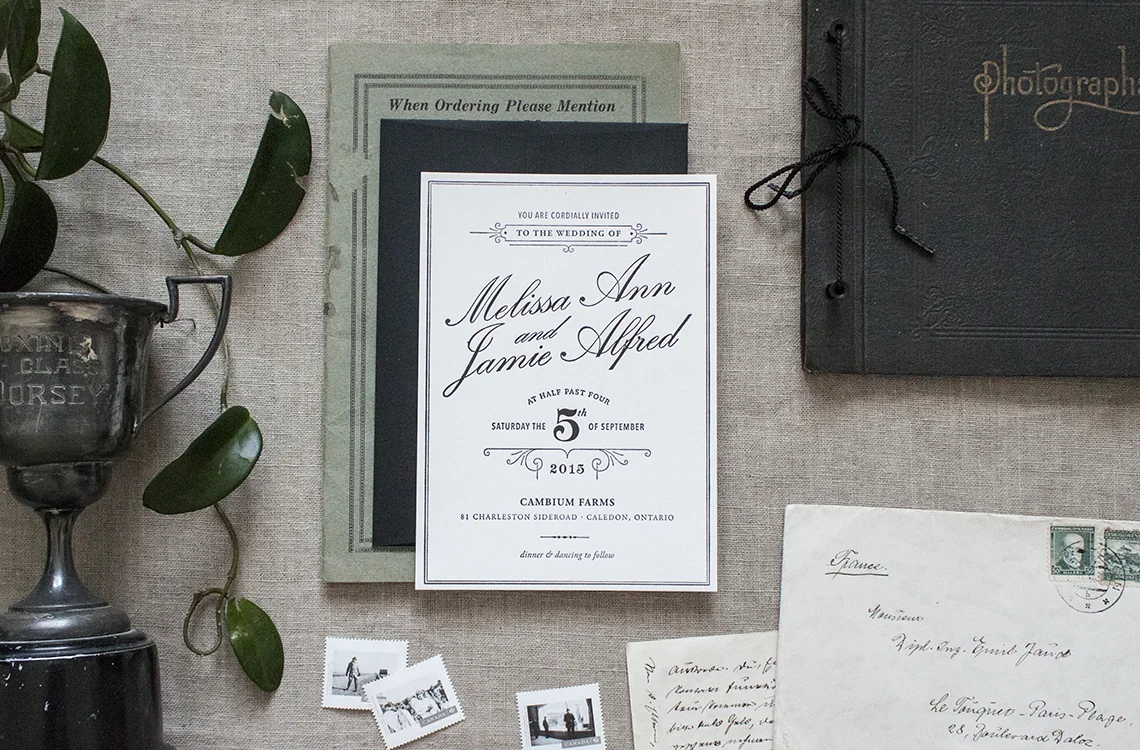 When Ordering Please Mention
Photographs
YOU ARE CORDIALLY INVITED
TO THE WEDDING OF
Melissa Ann
and
Jamie Alfred
AT HALF PAST FOUR
SATURDAY THE 5th OF SEPTEMBER
2015
CAMBIUM FARMS
81 CHARLESTON SIDEROAD · CALEDON, ONTARIO
dinner & dancing to follow
CLASS
DORSEY
France.
Monsieur
Dipl. Ing. Emil
Le Touquet-Paris-Plage,
Boulevard
CANADA
CANADA